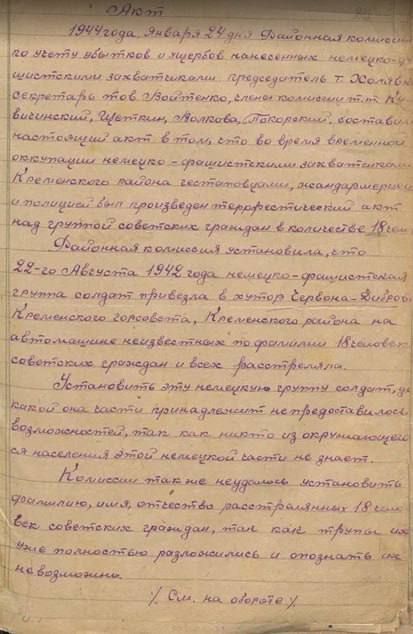 Акт
1944 года Января 24 дня Районная комиссия
по учету убытков и ущербов нанесенных немецко-фа-
шистскими захватчиками председатель т. Холяв
секретарь тов. Войтенко, члены комиссии т.т. Ку
вичинский, Щеткин, Волкова, Покорский, составили
настоящий акт в том, что во время временной
оккупации немецко-фашистскими захватчиками
Кременского района гестаповцами, жандармерией
и полицией был произведен террорестический акт
над группой советских граждан в количестве 18 чел
Районная комиссия установила, что
22-го Августа 1942 года немецко-фашистская
группа солдат привезла в хутор Червона-Диброва
Кременского горсовета, Кременского района на
автомашине неизвестных по фамилии 18 человек
советских граждан и всех расстреляла.
Установить эту немецкую группу солдат, до
какой она части принадлежит непредоставилось
возможностей, так как никто из окружающего
ся населения этой немецкой части не знает.
Комиссии также неудалось установить
фамилию, имя, отчество расстрелянных 18 чело
век советских граждан, так как трупы их
уже полностью разложились и опознать их
невозможно.
/. См. на обороте /.